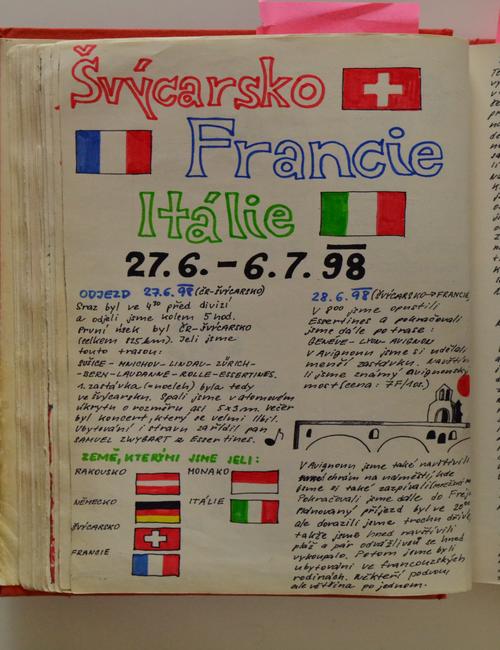 Švýcarsko
Francie
Itálie
27.6. – 6.7. 98
ODJEZD 27.6.98 (ČR-ŠVÝCARSKO)
Sraz byl ve 4³⁰ před divizí
a odjeli jsme kolem 5 hod.
První úsek byl ČR-ŠVÝCARSKO
(celkem 825 km). Jeli jsme
touto trasou:
SUŠICE - MNICHOV - LINDAU - ZÜRICH -
- BERN - LAUSANNE - ROLLE - ESSERTINES.
1. zastávka (= nocleh) byla tedy
ve Švýcarsku. Spali jsme v atomovém
úkrytu o rozměru asi 5x3 m. Večer
byl koncert, který se velmi líbil.
Ubytování i stravu zařídil pan
SAMUEL ZWYGART z Essertines.
ZEMĚ, KTERÝMI JSME JELI:
RAKOUSKO
MONAKO
NĚMECKO
ITÁLIE
ŠVÝCARSKO
FRANCIE
28.6.98 (ŠVÝCARSKO → FRANCIE
V 8⁰⁰ jsme opustili
Essertines a pokračovali
jsme dále po trase:
GENEVE - LYON - AVIGNON
V Avignonu jsme si udělali
menší zastávku. Navštívi-
li jsme známý Avignonský
most (cena: 7F/1os.)
V Avignonu jsme také navštívili
chrám na náměstí, kde
jsme si také zazpívali
Pokračovali jsme dále do
Plánovaný příjezd byl ve
ale dorazili jsme trochu dříve,
takže jsme hned navštívili
pláž a pár odvážlivců se hned
vykoupalo. Potom jsme byli
ubytováni ve francouzských
rodinách. Někteří po dvou,
ale většina po jednom.